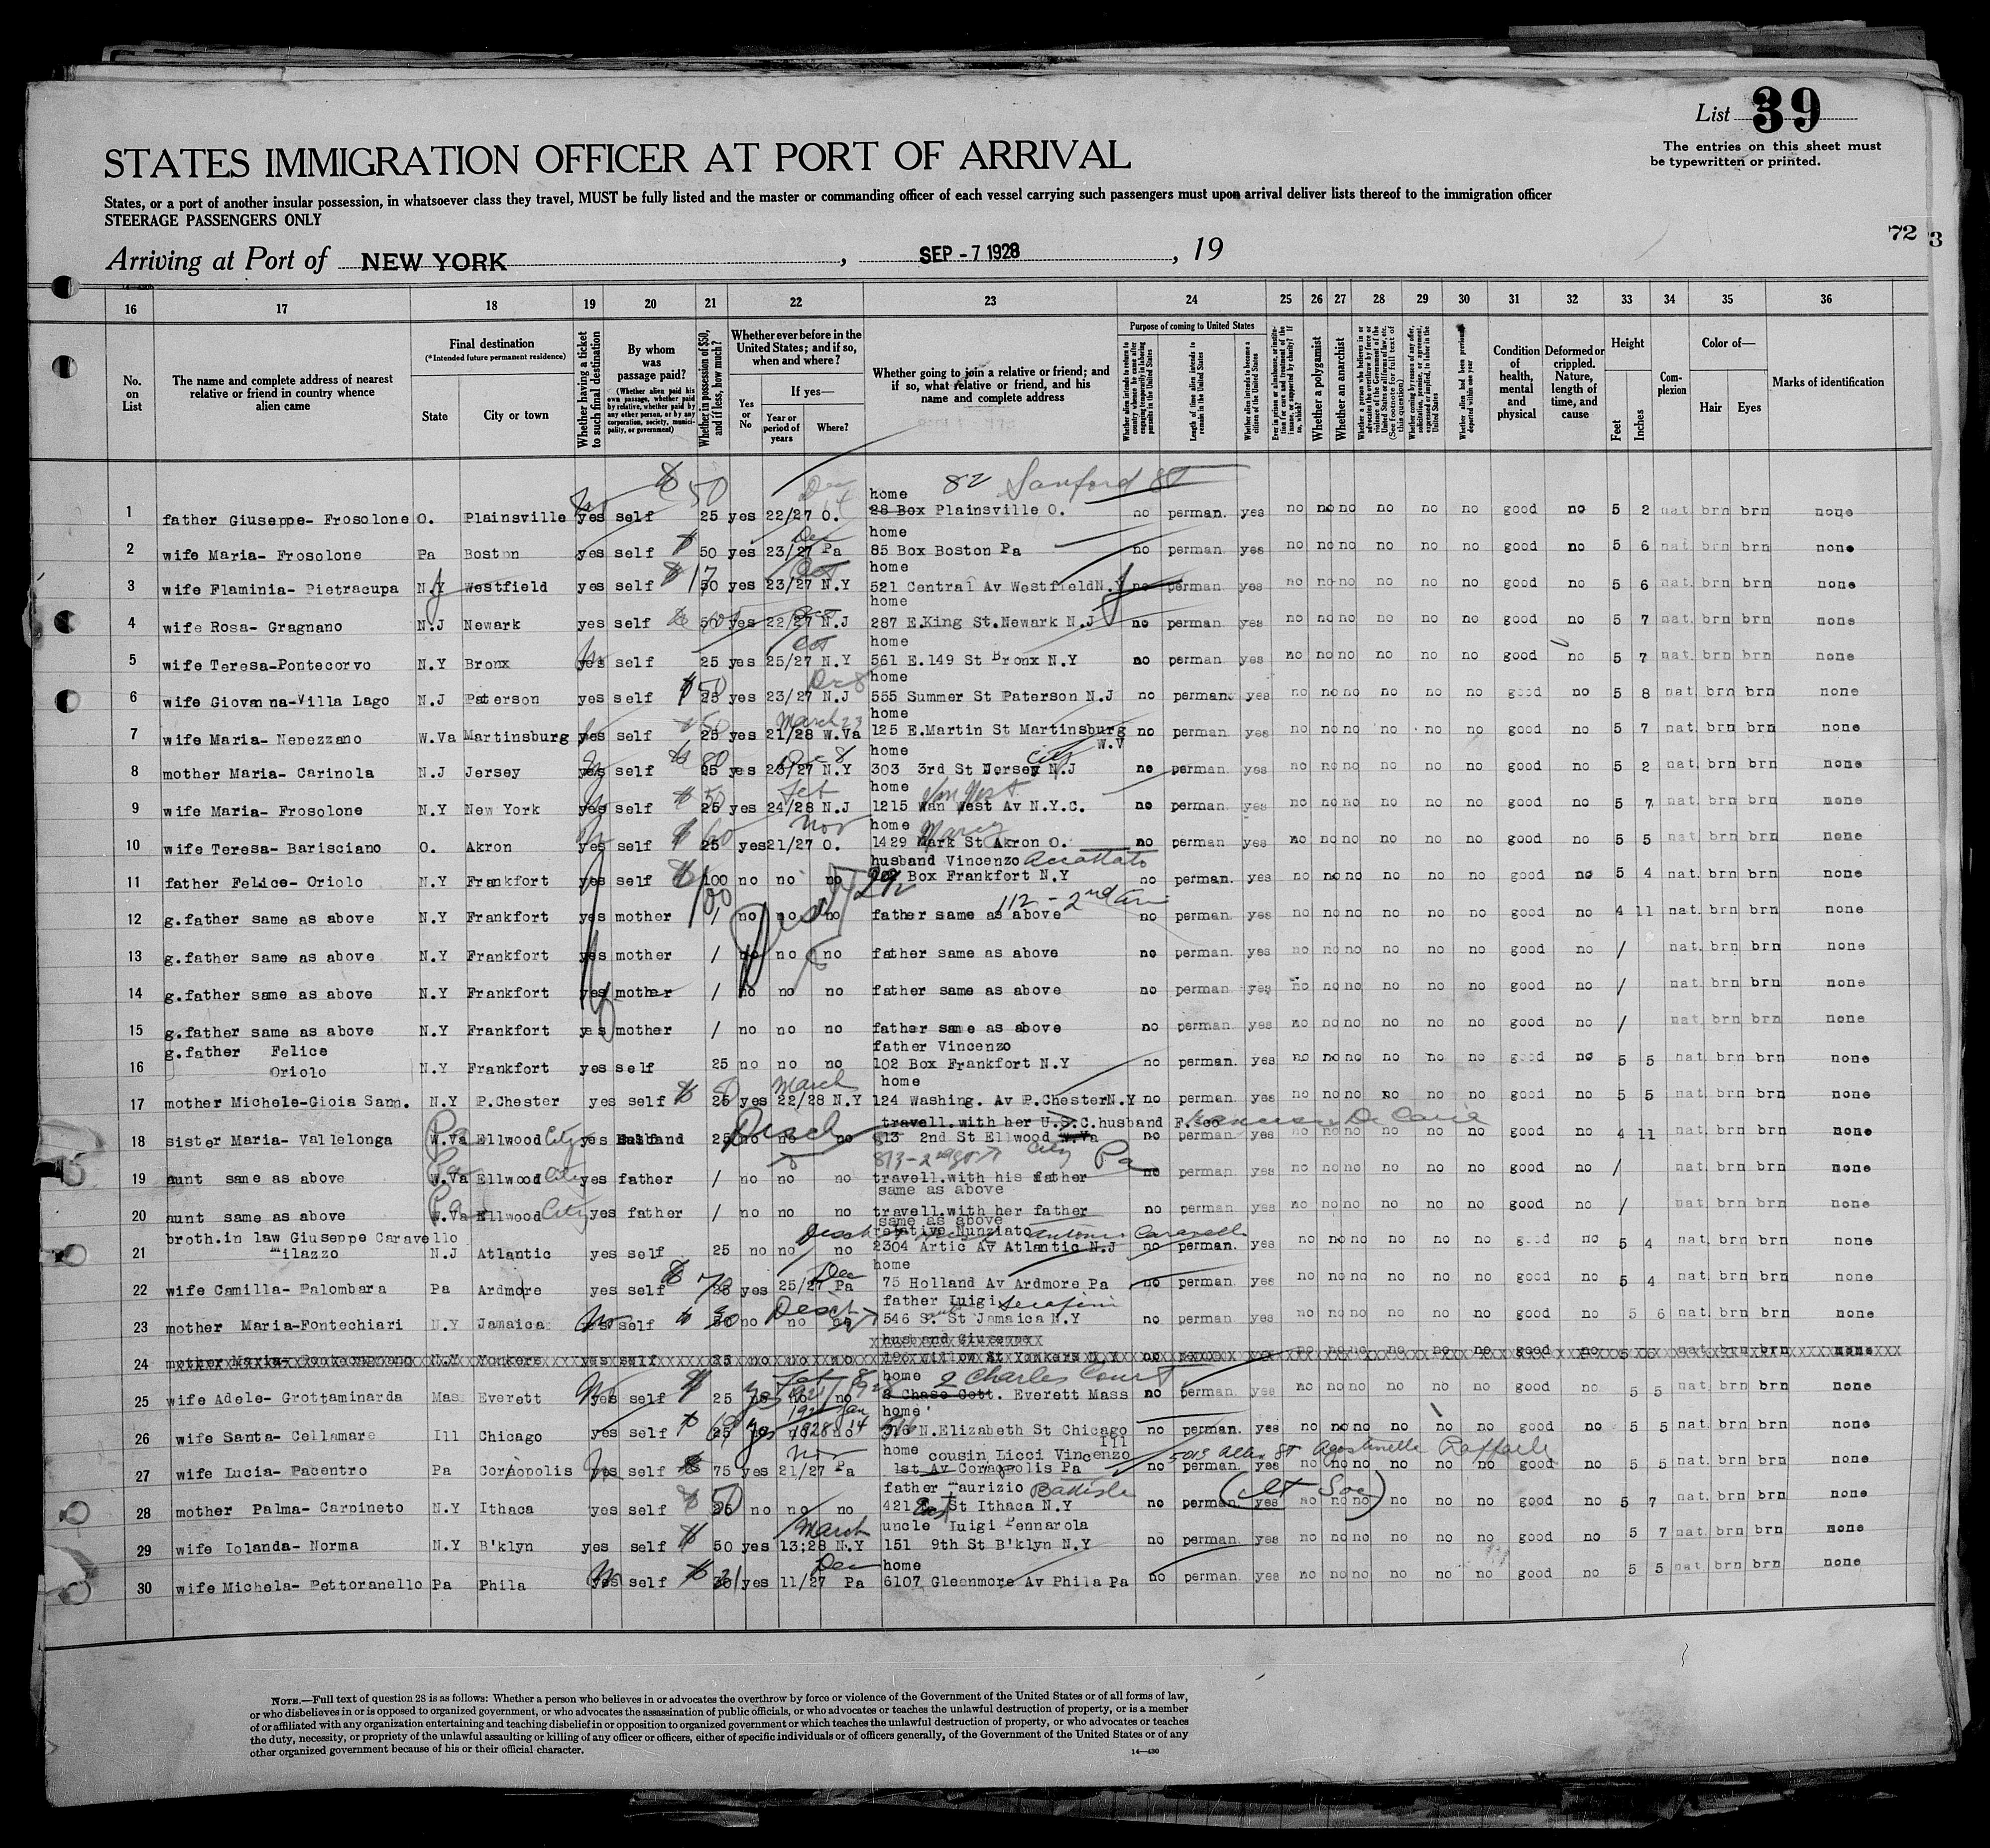 List 39
The entries on this sheet must
be typewritten or printed.
STATES IMMIGRATION OFFICER AT PORT OF ARRIVAL
States, or a port of another insular possession, in whatsoever class they travel, MUST be fully listed and the master or commanding officer of each vessel carrying such passengers must upon arrival deliver lists thereof to the immigration officer
STEERAGE PASSENGERS ONLY
72 3
Arriving at Port of NEW YORK, SEP - 7 1928, 19
16 17 18 19 20 21 22 23 24 25 26 27 28 29 30 31 32 33 34 35 36
No. on List
The name and complete address of nearest relative or friend in country whence alien came
Final destination
(*Intended future permanent residence)
State
City or town
Whether having a ticket to such final destination
By whom was passage paid?
(Whether alien paid his own passage, whether paid by relative, whether paid by any other person, or by any corporation, society, municipality, or government)
Whether in possession of $50, and if less, how much?
Whether ever before in the United States; and if so, when and where?
Yes or No
If yes—
Year or period of years
Where?
Whether going to join a relative or friend; and if so, what relative or friend, and his name and complete address
Purpose of coming to United States
Length of time alien intends to remain in the United States
Whether alien intends to become a citizen of the United States
Whether a polygamist
Whether an anarchist
Condition of health, mental and physical
Deformed or crippled. Nature, length of time, and cause
Height
Feet
Inches
Complexion
Color of—
Hair
Eyes
Marks of identification
82 Sanford St
home
1 father Giuseppe- Frosolone O. Plainsville yes self $50 25 yes 22/27 O. 28 Box Plainsville O. no perman. yes no no no no no no good no 5 2 nat. brn brn none
Dec home
2 wife Maria- Frosolone Pa Boston yes self $ 50 yes 23/27 Pa 85 Box Boston Pa no perman yes no no no no no no good no 5 6 nat. brn brn none
Oct home
3 wife Flaminia- Pietracupa N.Y Westfield yes self $17 50 yes 23/27 N.Y 521 Central Av Westfield N.Y no perman. yes no no no no no no good no 5 6 nat. brn brn none
home
4 wife Rosa- Gragnano N.J Newark yes self 50 yes 22/27 N.J 287 E.King St.Newark N.J no perman. yes no no no no no no good no 5 7 nat. brn brn none
Oct home
5 wife Teresa-Pontecorvo N.Y Bronx yes self 25 yes 25/27 N.Y 561 E.149 St Bronx N.Y no perman yes no no no no no no good no 5 7 nat. brn brn none
home
6 wife Giovanna-Villa Lago N.J Paterson yes self $50 25 yes 23/27 N.J 555 Summer St Paterson N.J no perman. yes no no no no no no good no 5 8 nat. brn brn none
March 23 home
7 wife Maria- Nepezzano W.Va Martinsburg yes self $50 25 yes 21/28 W.Va 125 E.Martin St Martinsburg W.V no perman. yes no no no no no no good no 5 7 nat. brn brn none
home City
8 mother Maria- Carinola N.J Jersey yes self 25 yes 23/27 N.Y 303 3rd St Jersey N.J no perman. yes no no no no no no good no 5 2 nat. brn brn none
home
9 wife Maria- Frosolone N.Y New York yes self $50 25 yes 24/28 N.J 1215 Wan West Av N.Y.C. no perman. yes no no no no no no good no 5 7 nat. brn brn none
Nov home
10 wife Teresa- Barisciano O. Akron yes self $60 25 yes 21/27 O. 1429 Mark St Akron O. no perman yes no no no no no no good no 5 5 nat brn brn none
husband Vincenzo
11 father Felice- Oriolo N.Y Frankfort yes self $100 100 no no no Box Frankfort N.Y no perman. yes no no no no no no good no 5 4 nat. brn brn none
112 - 2nd Av
12 g.father same as above N.Y Frankfort yes mother / no no no father same as above no perman. yes no no no no no no good no 4 11 nat. brn brn none
13 g.father same as above N.Y Frankfort yes mother / no no no father same as above no perman. yes no no no no no no good no / nat. brn brn none
14 g.father same as above N.Y Frankfort yes mother / no no no father same as above no perman. yes no no no no no no good no / nat. brn brn none
15 g.father same as above N.Y Frankfort yes mother / no no no father same as above no perman. yes no no no no no no good no / nat. brn brn none
g.father Felice father Vincenzo
16 Oriolo N.Y Frankfort yes self 25 no no no 102 Box Frankfort N.Y no perman. yes no no no no no no good no 5 5 nat. brn brn none
March home
17 mother Michele-Gioia Sann. N.Y P.Chester yes self $ 25 yes 22/28 N.Y 124 Washing. Av P.Chester N.Y no perman. yes no no no no no no good no 5 5 nat. brn brn none
travell.with her U.S.C.husband
18 sister Maria- Vallelonga W.Va Pa Ellwood City yes husband 25 no no no 813 2nd St Ellwood W.Va no perman. yes no no no no no no good no 4 11 nat. brn brn none
813 - 2nd St City Pa
19 aunt same as above W.Va Pa Ellwood City yes father / no no no travell.with his father no perman. yes no no no no no no good no / nat. brn brn none
same as above
20 aunt same as above W.Va Pa Ellwood City yes father / no no no travell.with her father no perman. yes no no no no no no good no / nat. brn brn none
same as above
broth.in law Giuseppe Caravello relative Nunziato
21 Milazzo N.J Atlantic yes self 25 no no no 2304 Artic Av Atlantic N.J no perman. yes no no no no no no good no 5 4 nat. brn brn none
Dec home
22 wife Camilla- Palombara Pa Ardmore yes self $ yes 25/27 Pa 75 Holland Av Ardmore Pa no perman. yes no no no no no no good no 5 4 nat. brn brn none
father Luigi Serafini
23 mother Maria-Fontechiari N.Y Jamaica yes self $ 50 no no no 546 S. St Jamaica N.Y no perman yes no no no no no no good no 5 6 nat. brn brn none
husband Giuseppe
24 N.Y Yonkers yes self 25 no no no Willow St Yonkers N.Y no good no 5 5 nat. brn brn none
home 2 Charles Court
25 wife Adele- Grottaminarda Mas Everett yes self $ 25 no no no 8 Chase Cott. Everett Mass no perman. yes no no no no no no good no 5 5 nat. brn brn none
home
26 wife Santa- Cellamare Ill Chicago yes self $ 25 yes 1928 N.Elizabeth St Chicago Ill no perman. yes no no no no no no good no 5 5 nat. brn brn none
Nov home cousin Licci Vincenzo Agostinelli Raffaele
27 wife Lucia- Pacentro Pa Coraopolis yes self $ 75 yes 21/27 Pa 1st Av Coraopolis Pa no perman. yes no no no no no no good no 5 5 nat. brn brn none
father Maurizio Battista
28 mother Palma- Carpineto N.Y Ithaca yes self $50 no no no 421 East St Ithaca N.Y no perman. yes no no no no no no good no 5 7 nat. brn brn none
March uncle Luigi Pennarola
29 wife Iolanda- Norma N.Y B'klyn yes self $ 50 yes 13;28 N.Y 151 9th St B'klyn N.Y no perman. yes no no no no no no good no 5 7 nat. brn brn none
Dec home
30 wife Michela- Pettoranello Pa Phila yes self $ yes 11/27 Pa 6107 Gleenmore Av Phila Pa no perman. yes no no no no no no good no 5 5 nat. brn brn none
NOTE.—Full text of question 28 is as follows: Whether a person who believes in or advocates the overthrow by force or violence of the Government of the United States or of all forms of law,
or who disbelieves in or is opposed to organized government, or who advocates the assassination of public officials, or who advocates or teaches the unlawful destruction of property, or is a member
of or affiliated with any organization entertaining and teaching disbelief in or opposition to organized government or which teaches the unlawful destruction of property, or who advocates or teaches
the duty, necessity, or propriety of the unlawful assaulting or killing of any officer or officers, either of specific individuals or of officers generally, of the Government of the United States or of any
other organized government because of his or their official character.
14—430